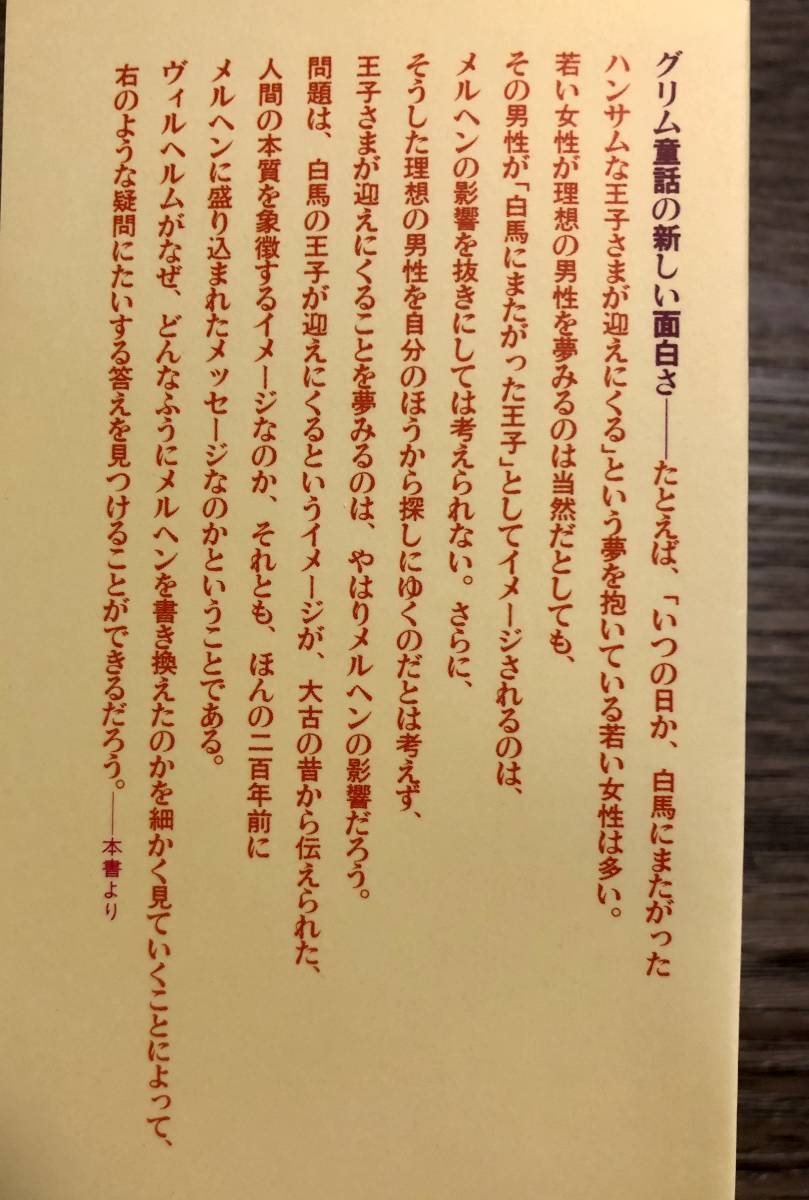 グリム童話の新しい面白さ――たとえば、「いつの日か、白馬にまたがった
ハンサムな王子さまが迎えにくる」という夢を抱いている若い女性は多い。
若い女性が理想の男性を夢みるのは当然だとしても、
その男性が「白馬にまたがった王子」としてイメージされるのは、
メルヘンの影響を抜きにしては考えられない。さらに、
そうした理想の男性を自分のほうから探しにゆくのだとは考えず、
王子さまが迎えにくることを夢みるのは、やはりメルヘンの影響だろう。
問題は、白馬の王子が迎えにくるというイメージが、大古の昔から伝えられた、
人間の本質を象徴するイメージなのか、それとも、ほんの二百年前に
メルヘンに盛り込まれたメッセージなのかということである。
ヴィルヘルムがなぜ、どんなふうにメルヘンを書き換えたのかを細かく見ていくことによって、
右のような疑問にたいする答えを見つけることができるだろう。――本書より